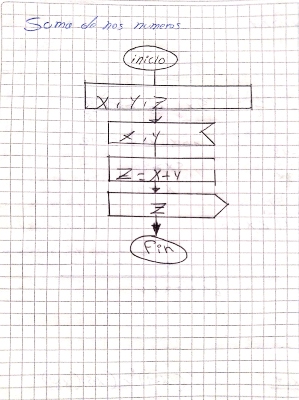 Suma do nos numeros
inicio
X, Y, Z
X, Y
Z = X+Y
Z
Fin